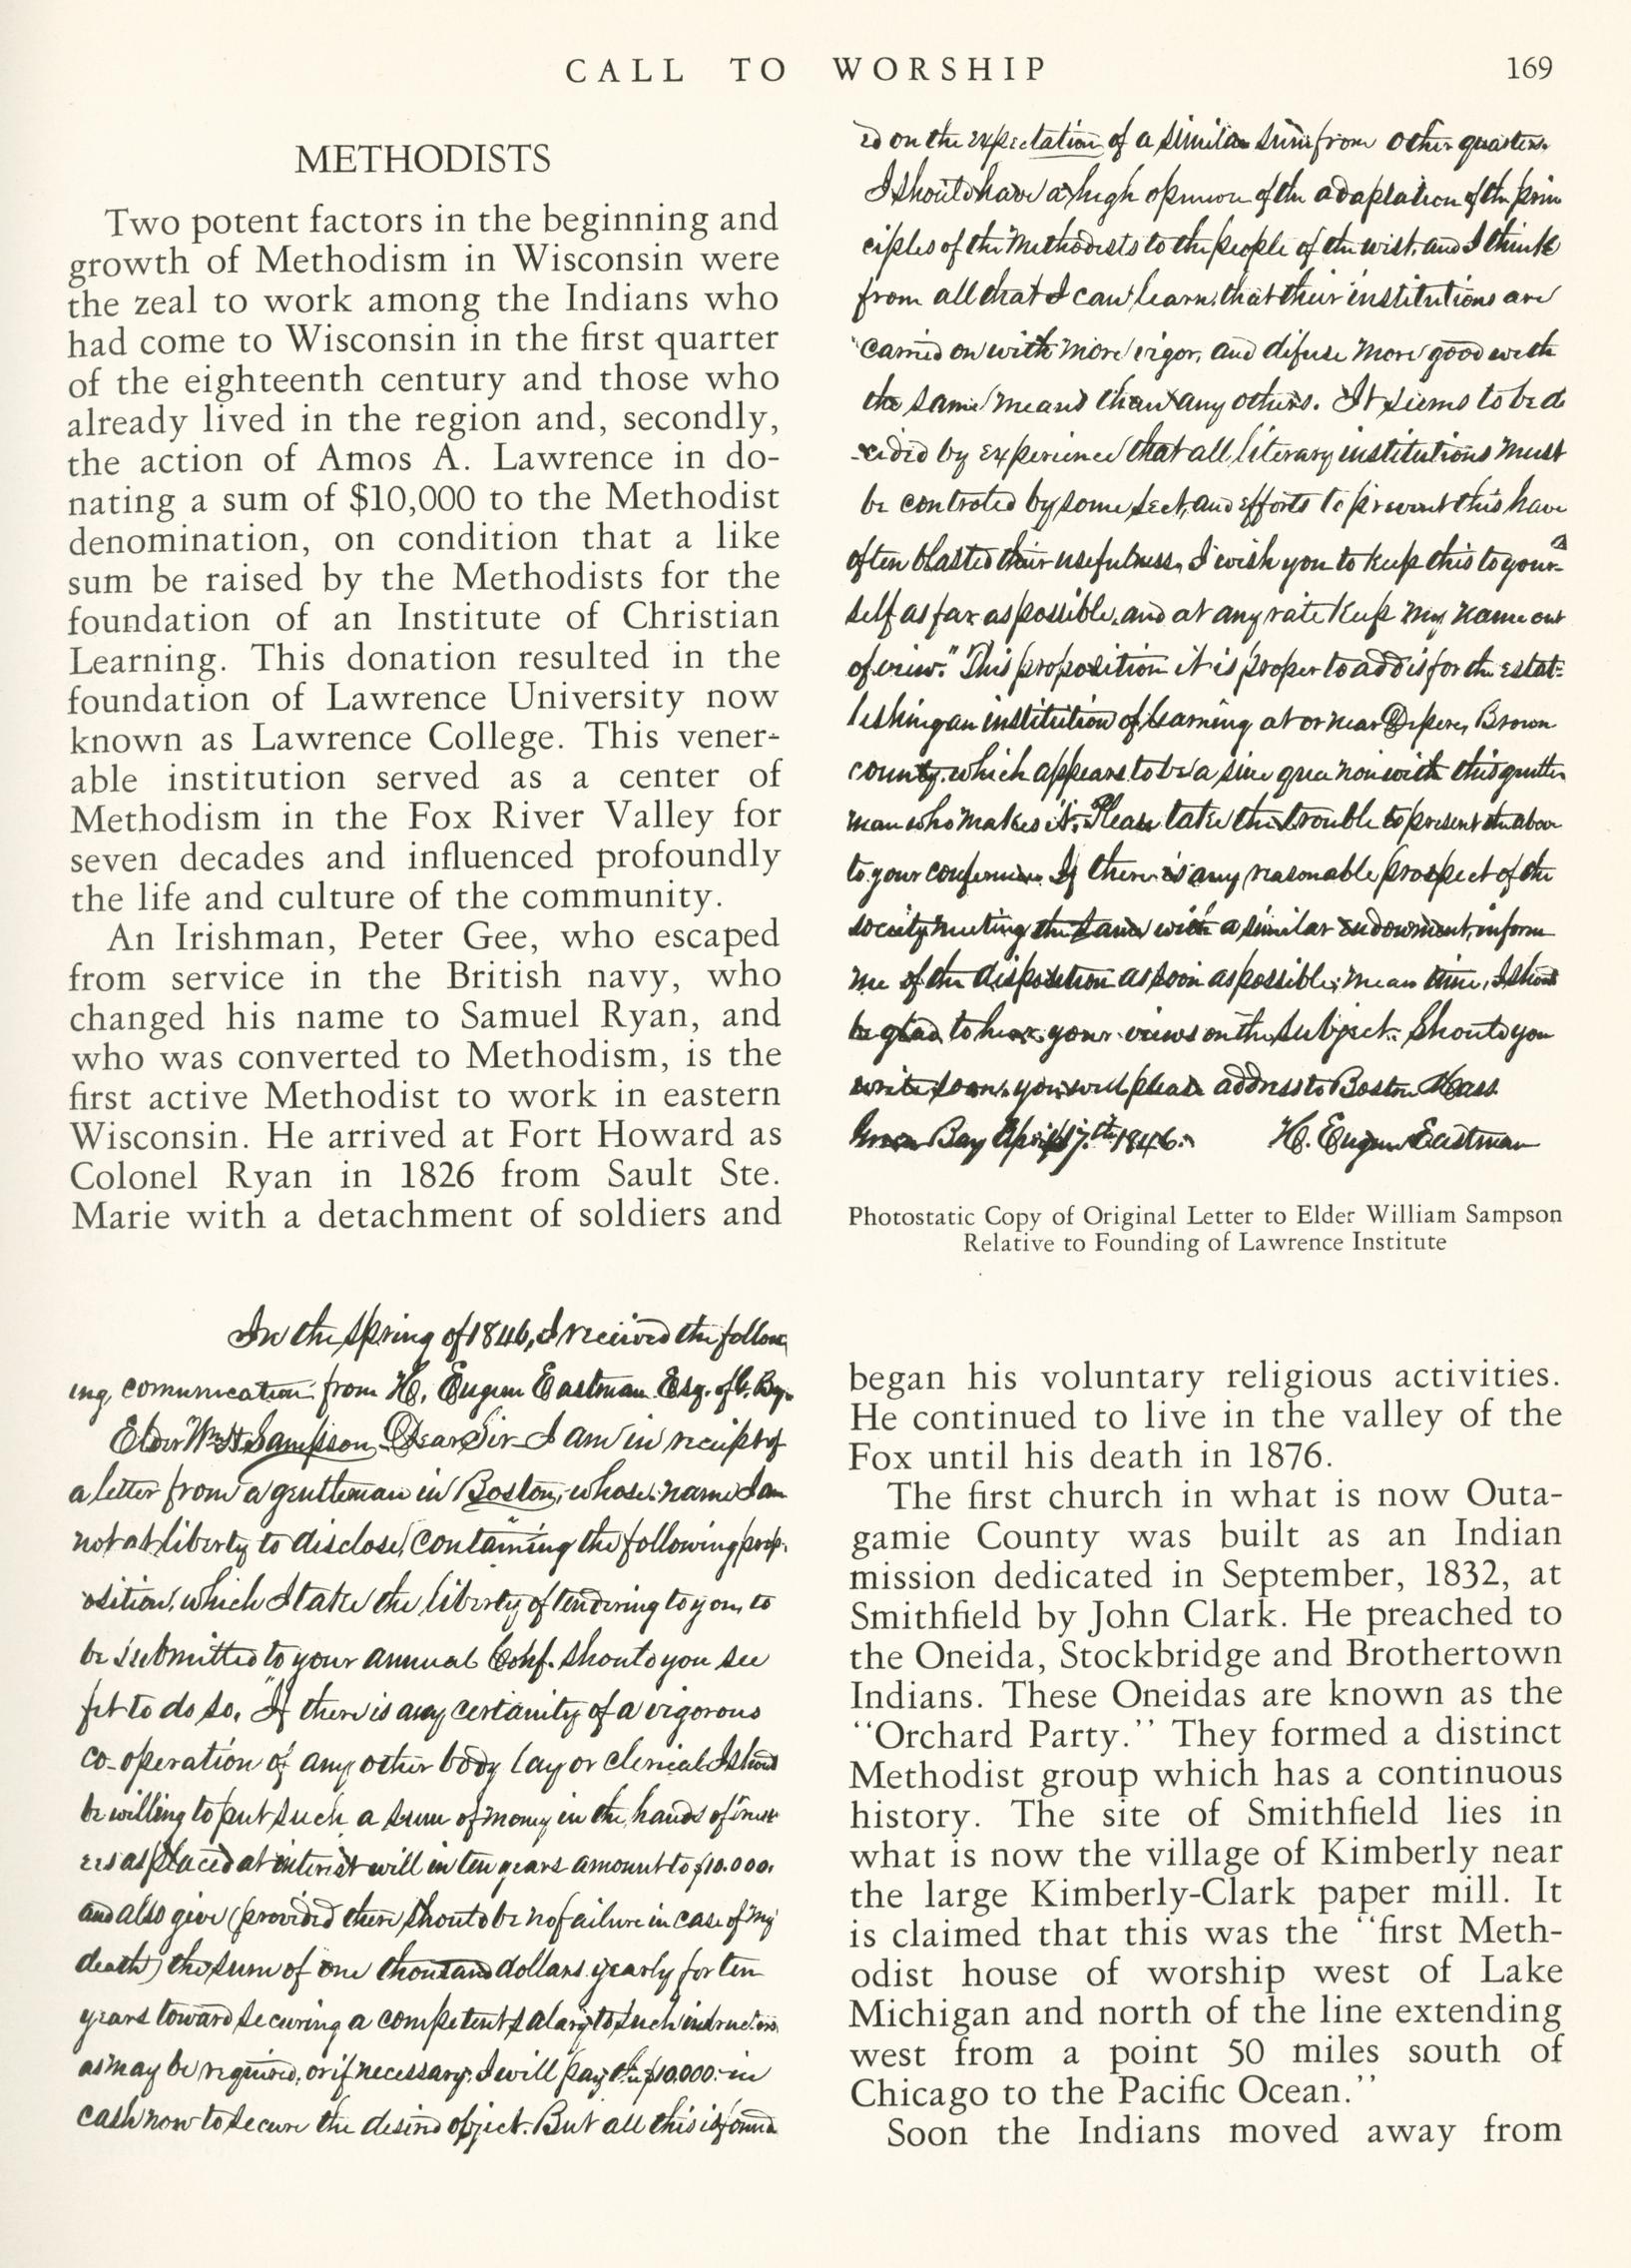 CALL TO WORSHIP 169
METHODISTS
Two potent factors in the beginning and
growth of Methodism in Wisconsin were
the zeal to work among the Indians who
had come to Wisconsin in the first quarter
of the eighteenth century and those who
already lived in the region and, secondly,
the action of Amos A. Lawrence in do-
nating a sum of $10,000 to the Methodist
denomination, on condition that a like
sum be raised by the Methodists for the
foundation of an Institute of Christian
Learning. This donation resulted in the
foundation of Lawrence University now
known as Lawrence College. This vener-
able institution served as a center of
Methodism in the Fox River Valley for
seven decades and influenced profoundly
the life and culture of the community.
An Irishman, Peter Gee, who escaped
from service in the British navy, who
changed his name to Samuel Ryan, and
who was converted to Methodism, is the
first active Methodist to work in eastern
Wisconsin. He arrived at Fort Howard as
Colonel Ryan in 1826 from Sault Ste.
Marie with a detachment of soldiers and
In the Spring of 1846, I received the follow
ing, comunication from H. Eugene Eastman Esq. of G. Bay.
Elder Wm H Sampson, Dear Sir - I am in receipt of
a letter from a gentleman in Boston, whose name I am
not at liberty to disclose, containing the following prop-
osition, which I take the liberty of tendering to you, to
be submitted to your annual Conf. should you see
fit to do so. "If there is any certainity of a vigorous
co-operation of any other body lay or clerical I should
be willing to put such a sum of money in the hands of trust
ees as placed at interest will in ten years amount to $10.000.
and also give (provided there should be no failure in case of my
death) the sum of one thousand dollars yearly for ten
years toward securing a competent salary to such instructors
as may be required, or if necessary. I will pay the $10.000. in
cash now to secure the desired object. But all this is found
ed on the expectation of a similar sum from other quarters.
I should have a high opinion of the adaptation of the prin
ciples of the Methodists to the people of the west, and I think
from all that I can learn, that their institutions are
carried on with more vigor, and difuse more good with
the same means than any others. It seems to be de
cided by experience that all literary institutions must
be controled by some sect, and efforts to prevent this have
often blasted their usefulness, I wish you to keep this to your-
self as far as possible, and at any rate keep my name out
of view." This proposition it is proper to add is for the estab-
lishing an institution of learning at or near Depere, Brown
county, which appears to be a sine qua non with this gentle
man who makes it. Please take the trouble to present the above
to your conference. If there is any reasonable prospect of the
society meeting the same with a similar endowment, inform
me of the disposition as soon as possible; mean time, I should
be glad to hear your views on the subject. Should you
write soon, you will please address to Boston Mass.
Green Bay April 17.th 1846. H. Eugene Eastman
Photostatic Copy of Original Letter to Elder William Sampson
Relative to Founding of Lawrence Institute
began his voluntary religious activities.
He continued to live in the valley of the
Fox until his death in 1876.
The first church in what is now Outa-
gamie County was built as an Indian
mission dedicated in September, 1832, at
Smithfield by John Clark. He preached to
the Oneida, Stockbridge and Brothertown
Indians. These Oneidas are known as the
"Orchard Party." They formed a distinct
Methodist group which has a continuous
history. The site of Smithfield lies in
what is now the village of Kimberly near
the large Kimberly-Clark paper mill. It
is claimed that this was the "first Meth-
odist house of worship west of Lake
Michigan and north of the line extending
west from a point 50 miles south of
Chicago to the Pacific Ocean."
Soon the Indians moved away from